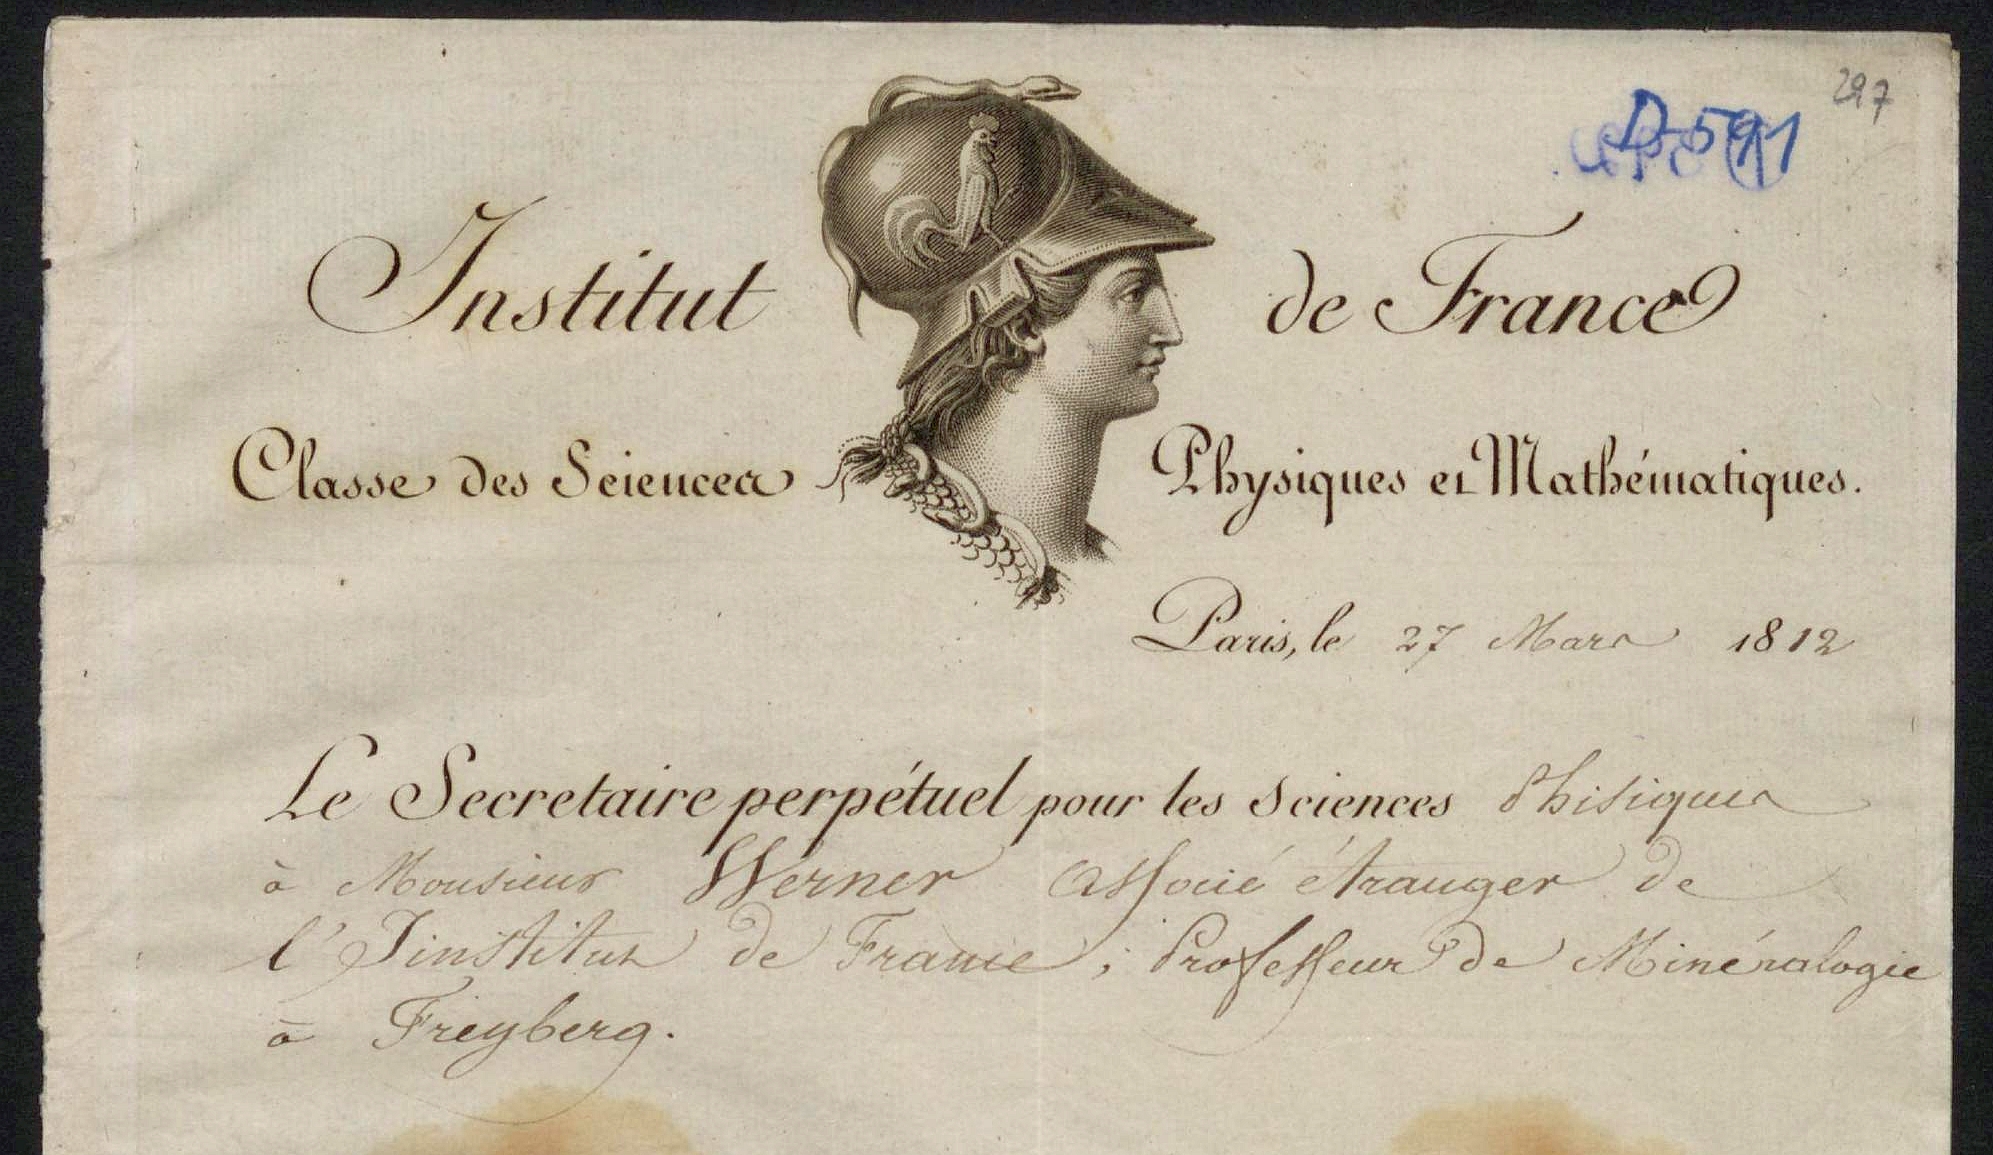 297
D 591
Institut de France
Classe des Sciences Physiques et Mathématiques.
Paris, le 27 Mars 1812
Le Secretaire perpétuel pour les Sciences Phisiques
à Monsieur Werner associé étranger de
l'Jinstitut de France, Professeur de Minéralogie
à Freyberg.